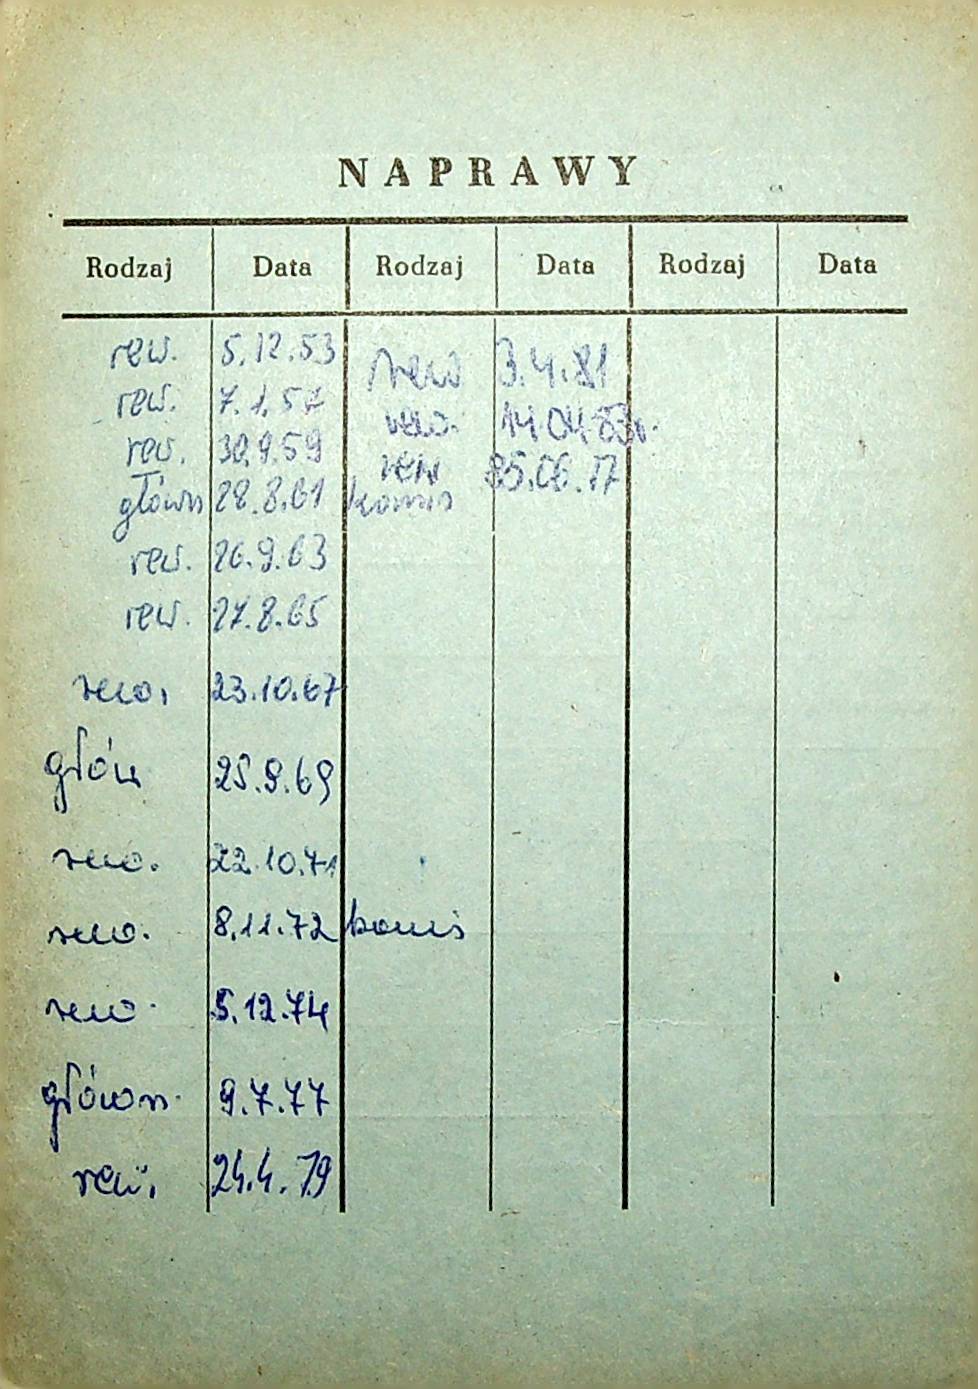 NAPRAWY
Rodzaj Data Rodzaj Data Rodzaj Data
rew. 5.12.53
rew. 7.1.57
rew. 30.9.59
główn 28.8.61
rew. 26.9.63
rew. 27.8.65
rew. 23.10.67
głów 25.9.69
rew. 22.10.71
rew. 8.11.72 komis
rew. 5.12.74
główn. 9.7.77
rew. 24.4.79
rew 3.4.81
rew. 14.04.83r.
rew 85.06.17
komis